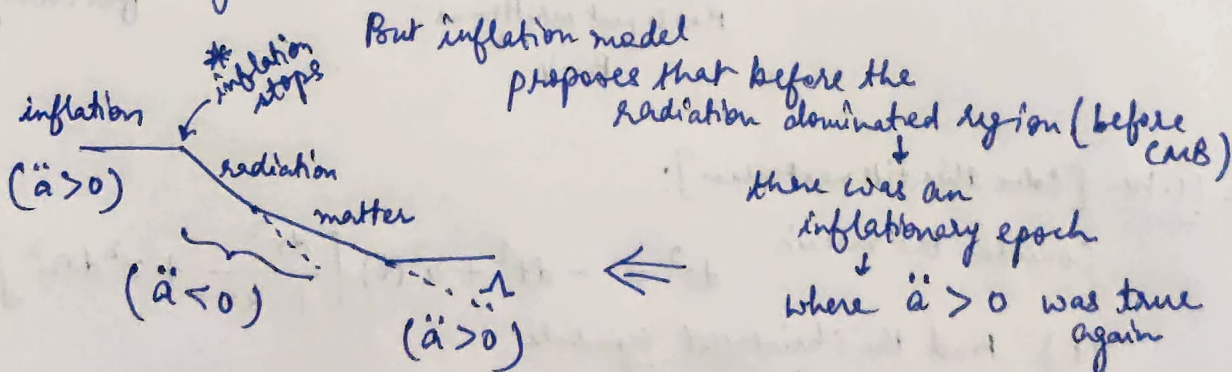 But inflation model
proposes that before the
radiation dominated region (before
CMB)
↓
there was an
inflationary epoch
↓
where ä > 0 was true
again
⇐
* inflation
stops
inflation
(ä > 0)
radiation
matter
(ä < 0)
Λ
(ä > 0)